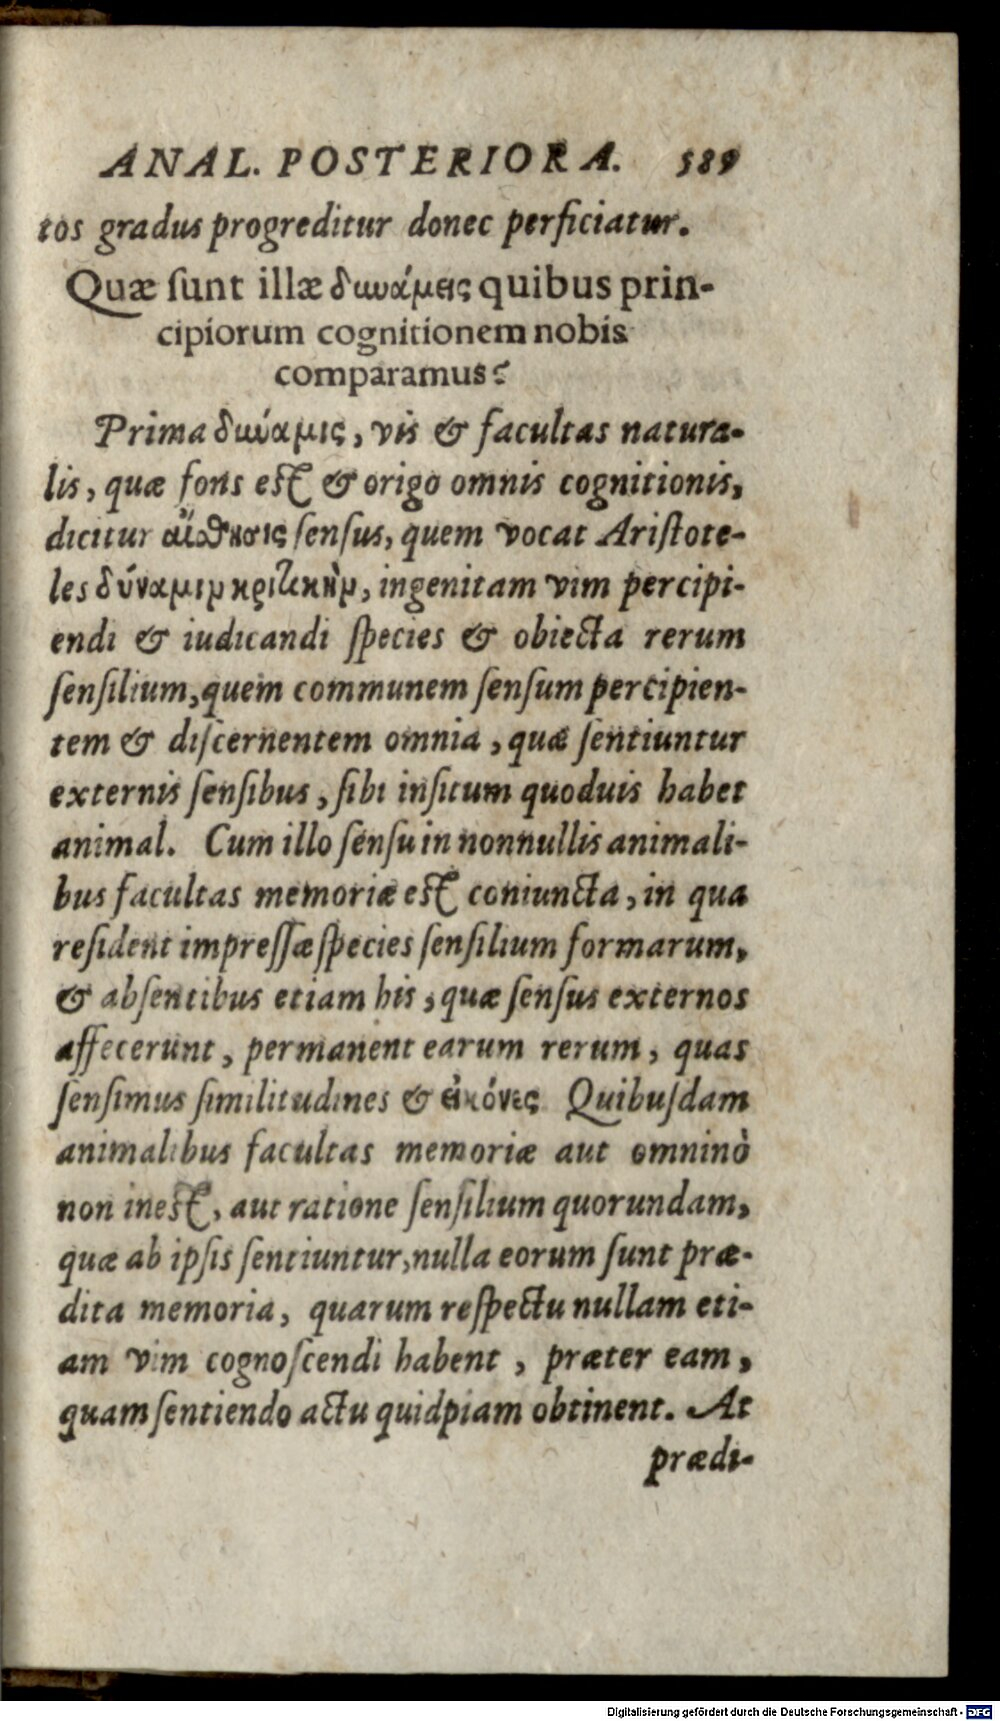 ANAL. POSTERIORA. 589
tos gradus progreditur donec perficiatur.
Quæ sunt illæ δυνάμεις quibus prin-
cipiorum cognitionem nobis
comparamus?
Prima δύναμις, vis & facultas natura-
lis, quæ fons est & origo omnis cognitionis,
dicitur αἴσθησις sensus, quem vocat Aristote-
les δύναμιν κριτικὴν, ingenitam vim percipi-
endi & iudicandi species & obiecta rerum
sensilium, quem communem sensum percipien-
tem & discernentem omnia, quæ sentiuntur
externis sensibus, sibi insitum quoduis habet
animal. Cum illo sensu in nonnullis animali-
bus facultas memoriæ est coniuncta, in qua
resident impressæ species sensilium formarum,
& absentibus etiam his, quæ sensus externos
affecerunt, permanent earum rerum, quas
sensimus similitudines & εἰκόνες Quibusdam
animalibus facultas memoriæ aut omninò
non inest, aut ratione sensilium quorundam,
quæ ab ipsis sentiuntur, nulla eorum sunt præ-
dita memoria, quarum respectu nullam eti-
am vim cognoscendi habent, præter eam,
quam sentiendo actu quidpiam obtinent. At
prædi-
Digitalisierung gefördert durch die Deutsche Forschungsgemeinschaft - DFG